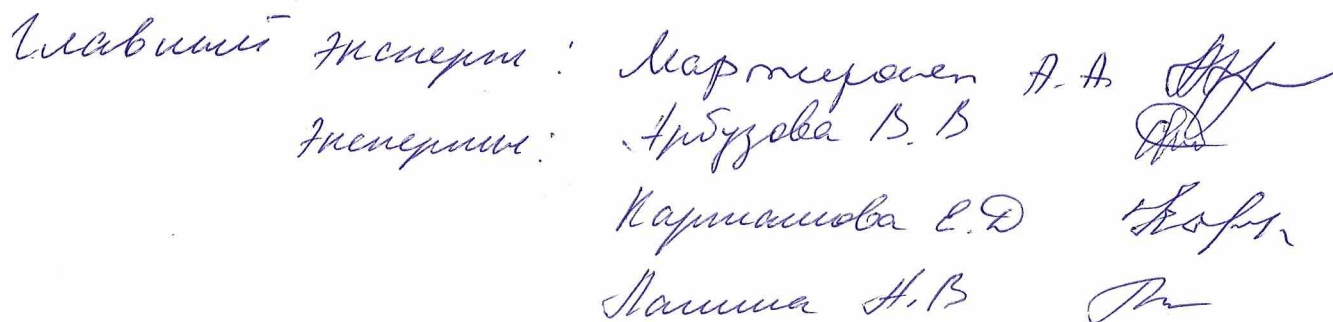 Главный эксперт: Мартиросян А.А
Эксперты: Арбузова В.В
Карташова Е.Д
Лапина Н.В